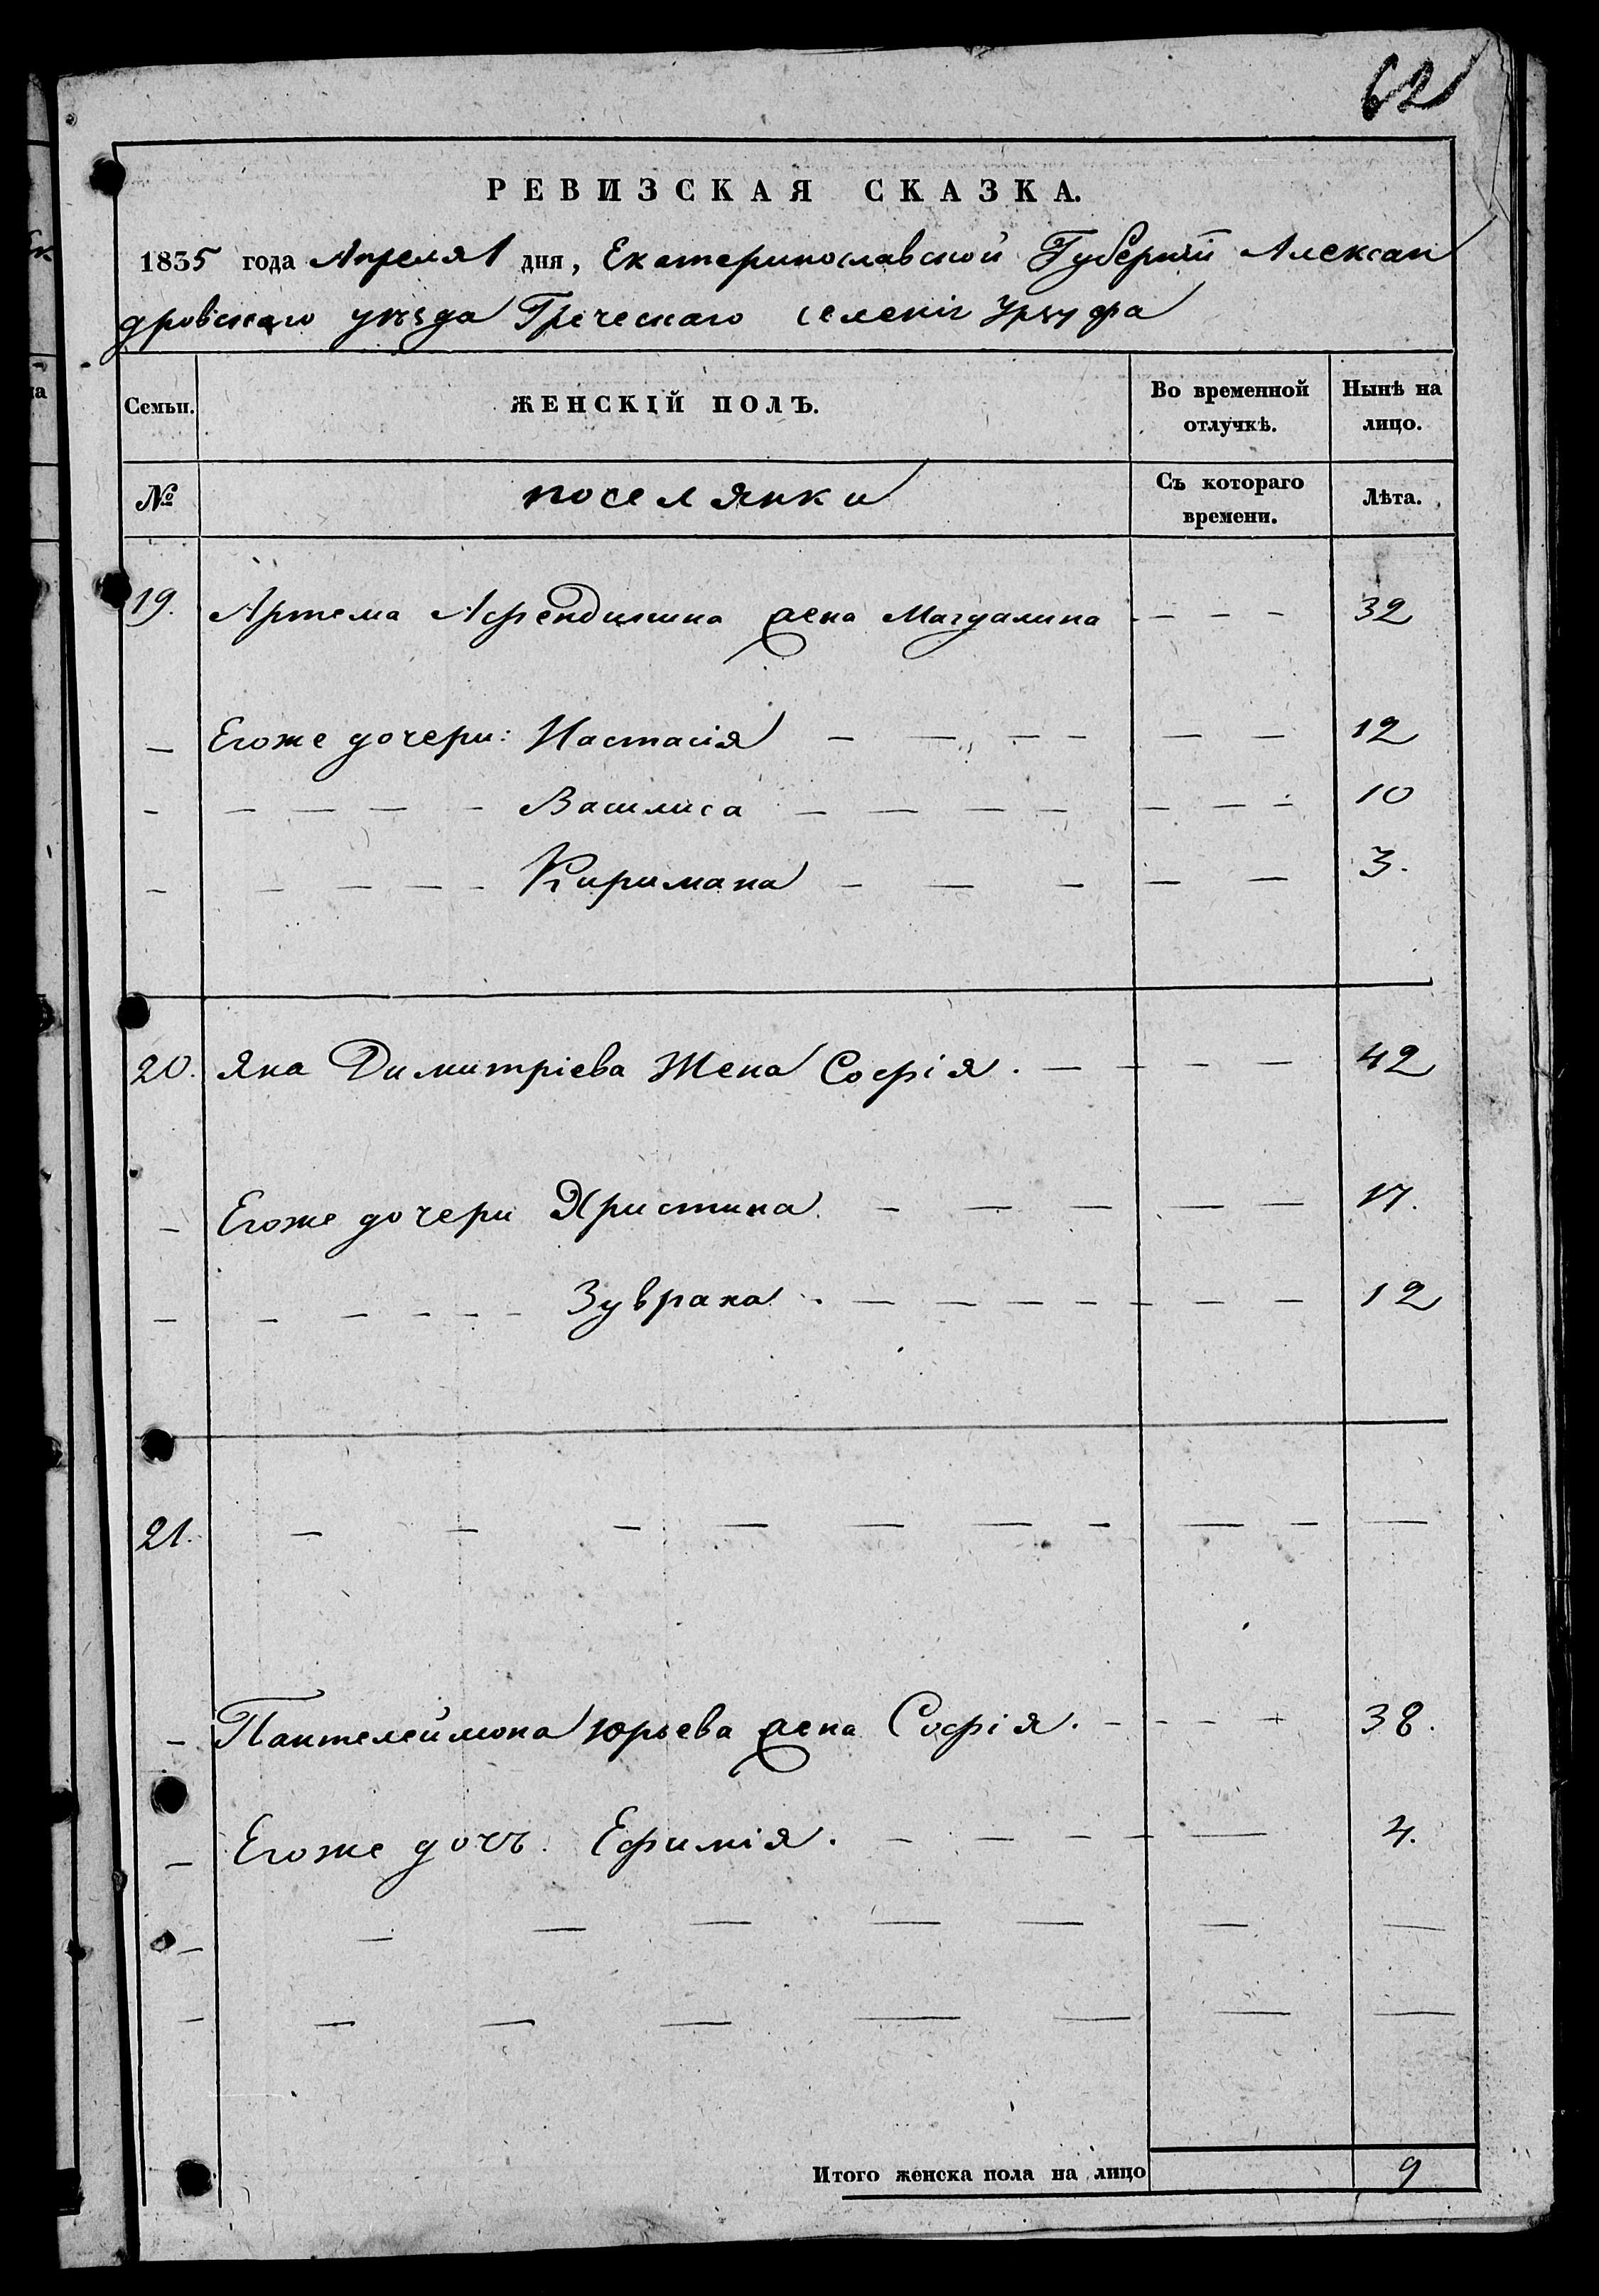 62
РЕВИЗСКАЯ СКАЗКА.
1835 года Апреля 1 дня, Екатеринославской Губерніи Алексан
дровскаго уѣзда Греческаго селенія Урзуфа
Семьи. ЖЕНСКІЙ ПОЛЪ. Во временной отлучкѣ. Нынѣ на лицо.
№ поселянки Съ котораго времени. Лѣта.
19. Артема Афендикина жена Магдалина - - - 32
— Егоже дочери: Настасія — — — — — — 12
- — — — — - Василиса — — — — — — — 10
- — — — — - Киримана — — — — — 3.
20. Яна Димитріева Жена Софія. — — — — 42
— Егоже дочери Христина. — — — — — 17.
— — — — — - Зуврана. — — — — — — — 12
21. — — — — — — — — — —
— Пантелеймона Юрьева жена Софія. — — — — 38.
— Егоже дочь. Ефимія. — — — — — 4.
— — — — — — — —
— — — — — — — —
Итого женска пола на лицо 9